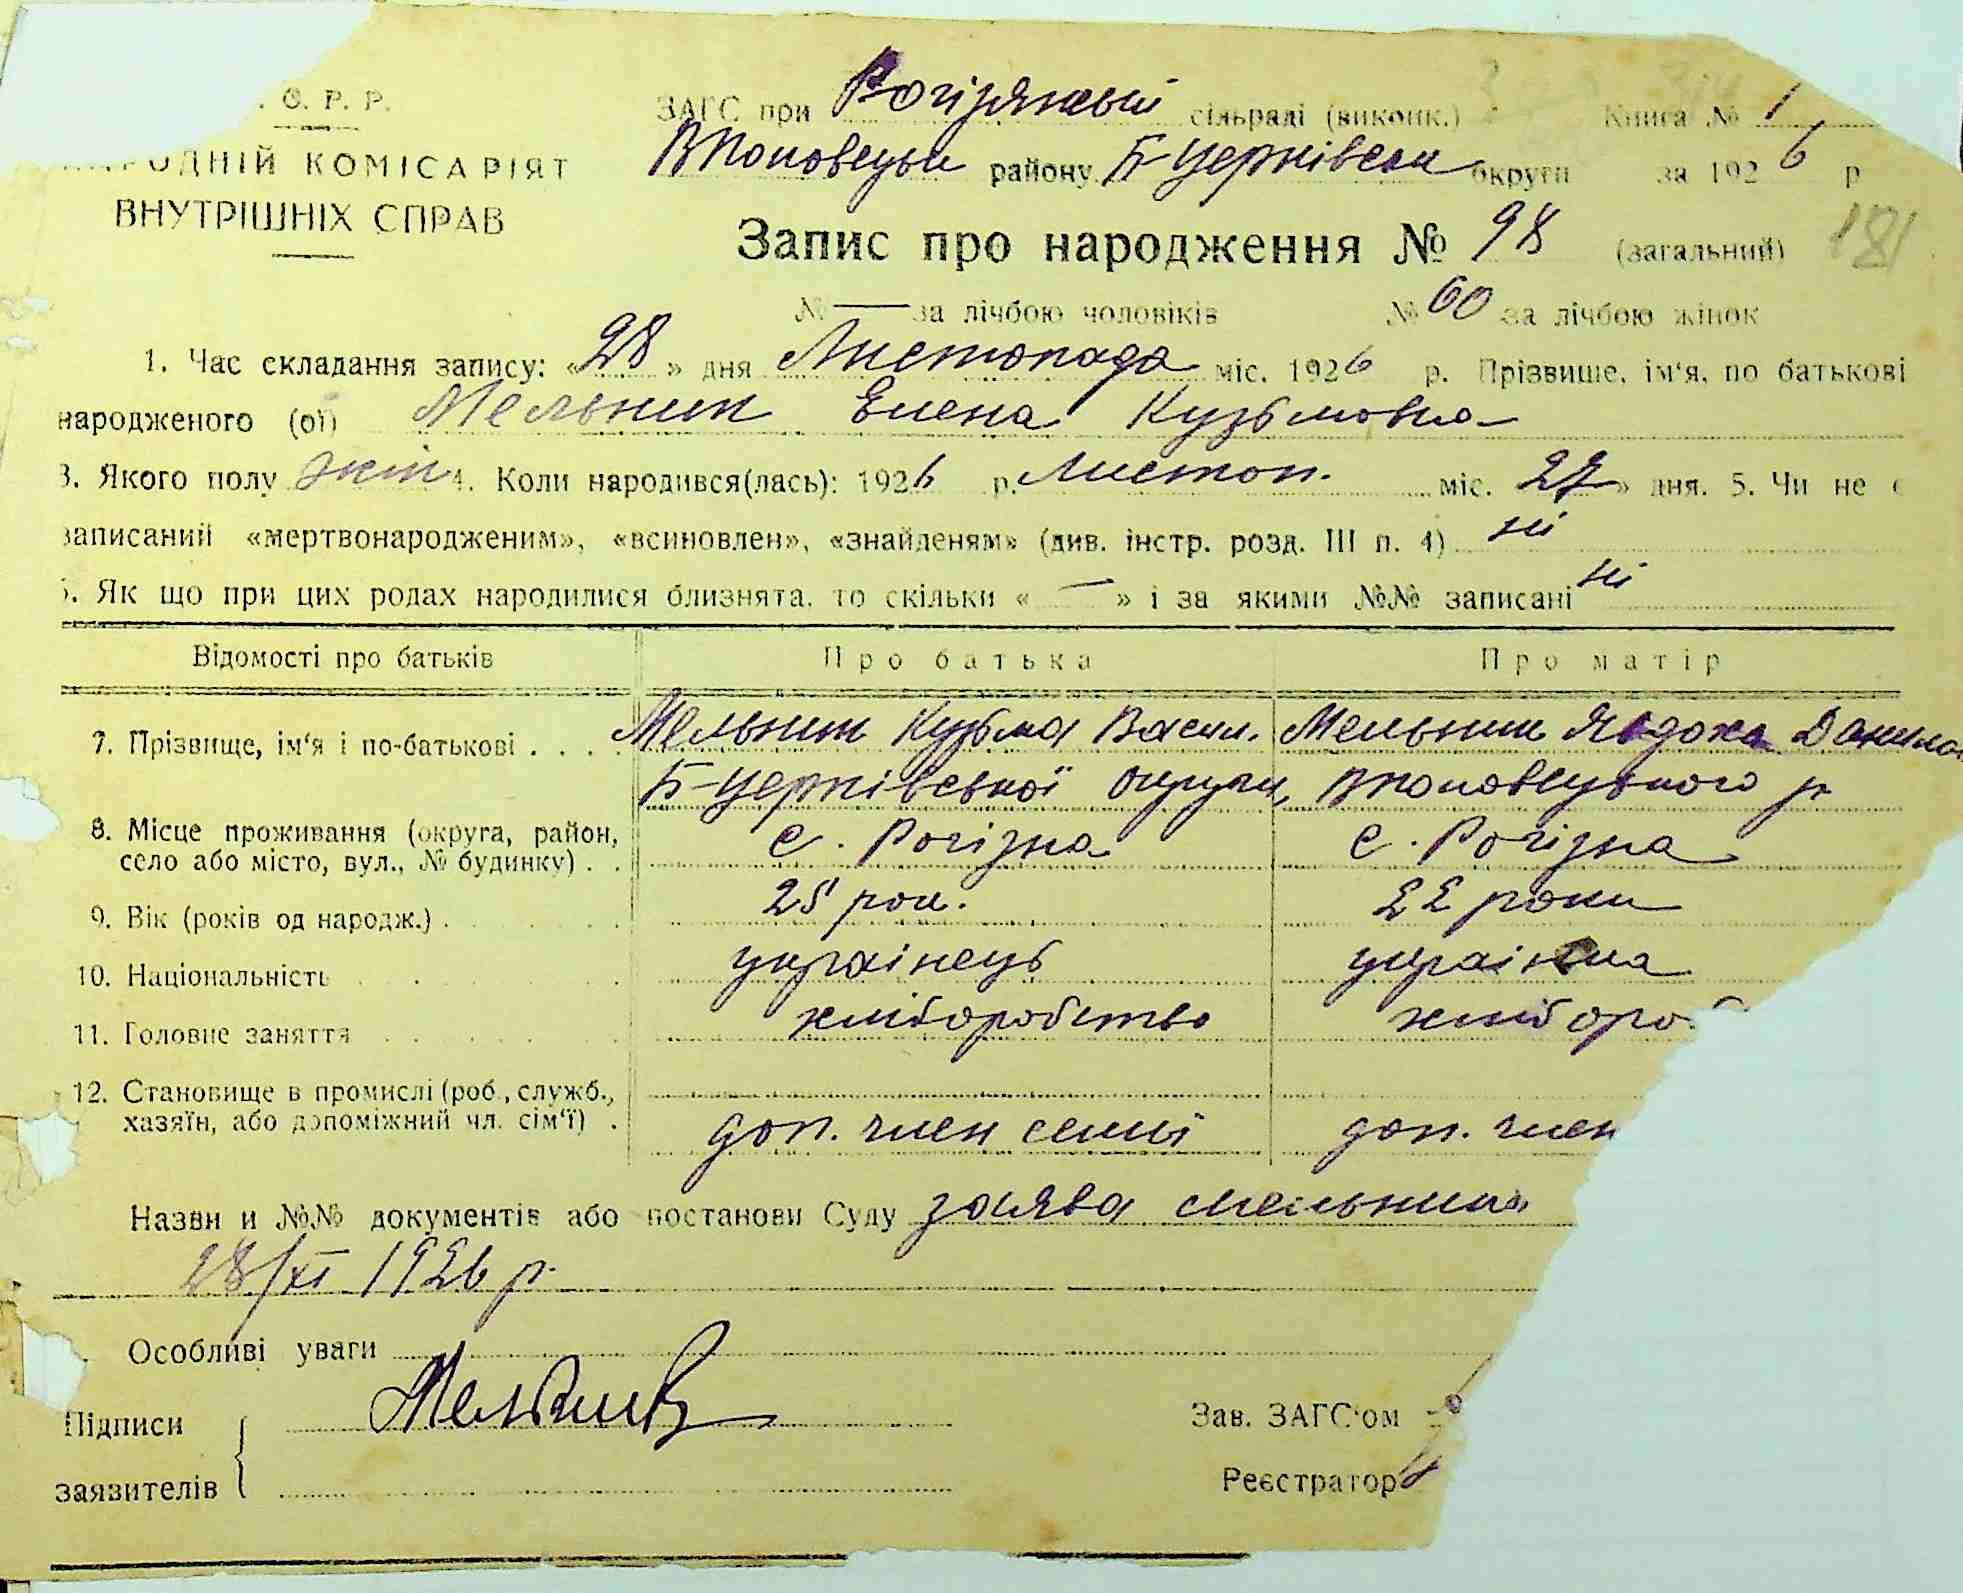 . С. Р. Р.
ЗАГС при Рогізянській сільраді (виконк.) Книга № 1
РОДНІЙ КОМІСАРІЯТ
ВНУТРІШНІХ СПРАВ
району Б-Церківськ округи за 1926 р
Запис про народження № 98 (загальний) 181
№ — за лічбою чоловіків № 60 за лічбою жінок
1. Час складання запису: «28» дня Листопада міс. 1926 р. Прізвище, ім‘я, по батькові
народженого (ої) Мельник Елена Кузьмовна
3. Якого полу жін 4. Коли народився(лась): 1926 р. Листоп. міс. 27» дня. 5. Чи не є
записаний «мертвонародженим», «всиновлен», «знайденям» (див. інстр. розд. III п. 4) ні
. Як що при цих родах народилися близнята, то скільки « — » і за якими №№ записані ні
Відомості про батьків Про батька Про матір
7. Прізвище, ім‘я і по-батькові . . . . Мельник Кузьма Васил. Мельник Явдоха Данило
Б-Церківської округи, р
8. Місце проживання (округа, район,
село або місто, вул., № будинку) . . с. Рогізна с. Рогізна
9. Вік (років од народж.) . 25 рок. 22 роки
10. Національність українець українка
11. Головне заняття хліборобство хлібороб
12. Становище в промислі (роб., служб.,
хазяїн, або допоміжний чл. сім‘ї) . доп. член семьї доп. член
Назви и №№ документів або постанови Суду заява Мельника
28/XI 1926 р.
Особливі уваги
Підписи Мельник Зав. ЗАГС‘ом
заявителів Реєстратор